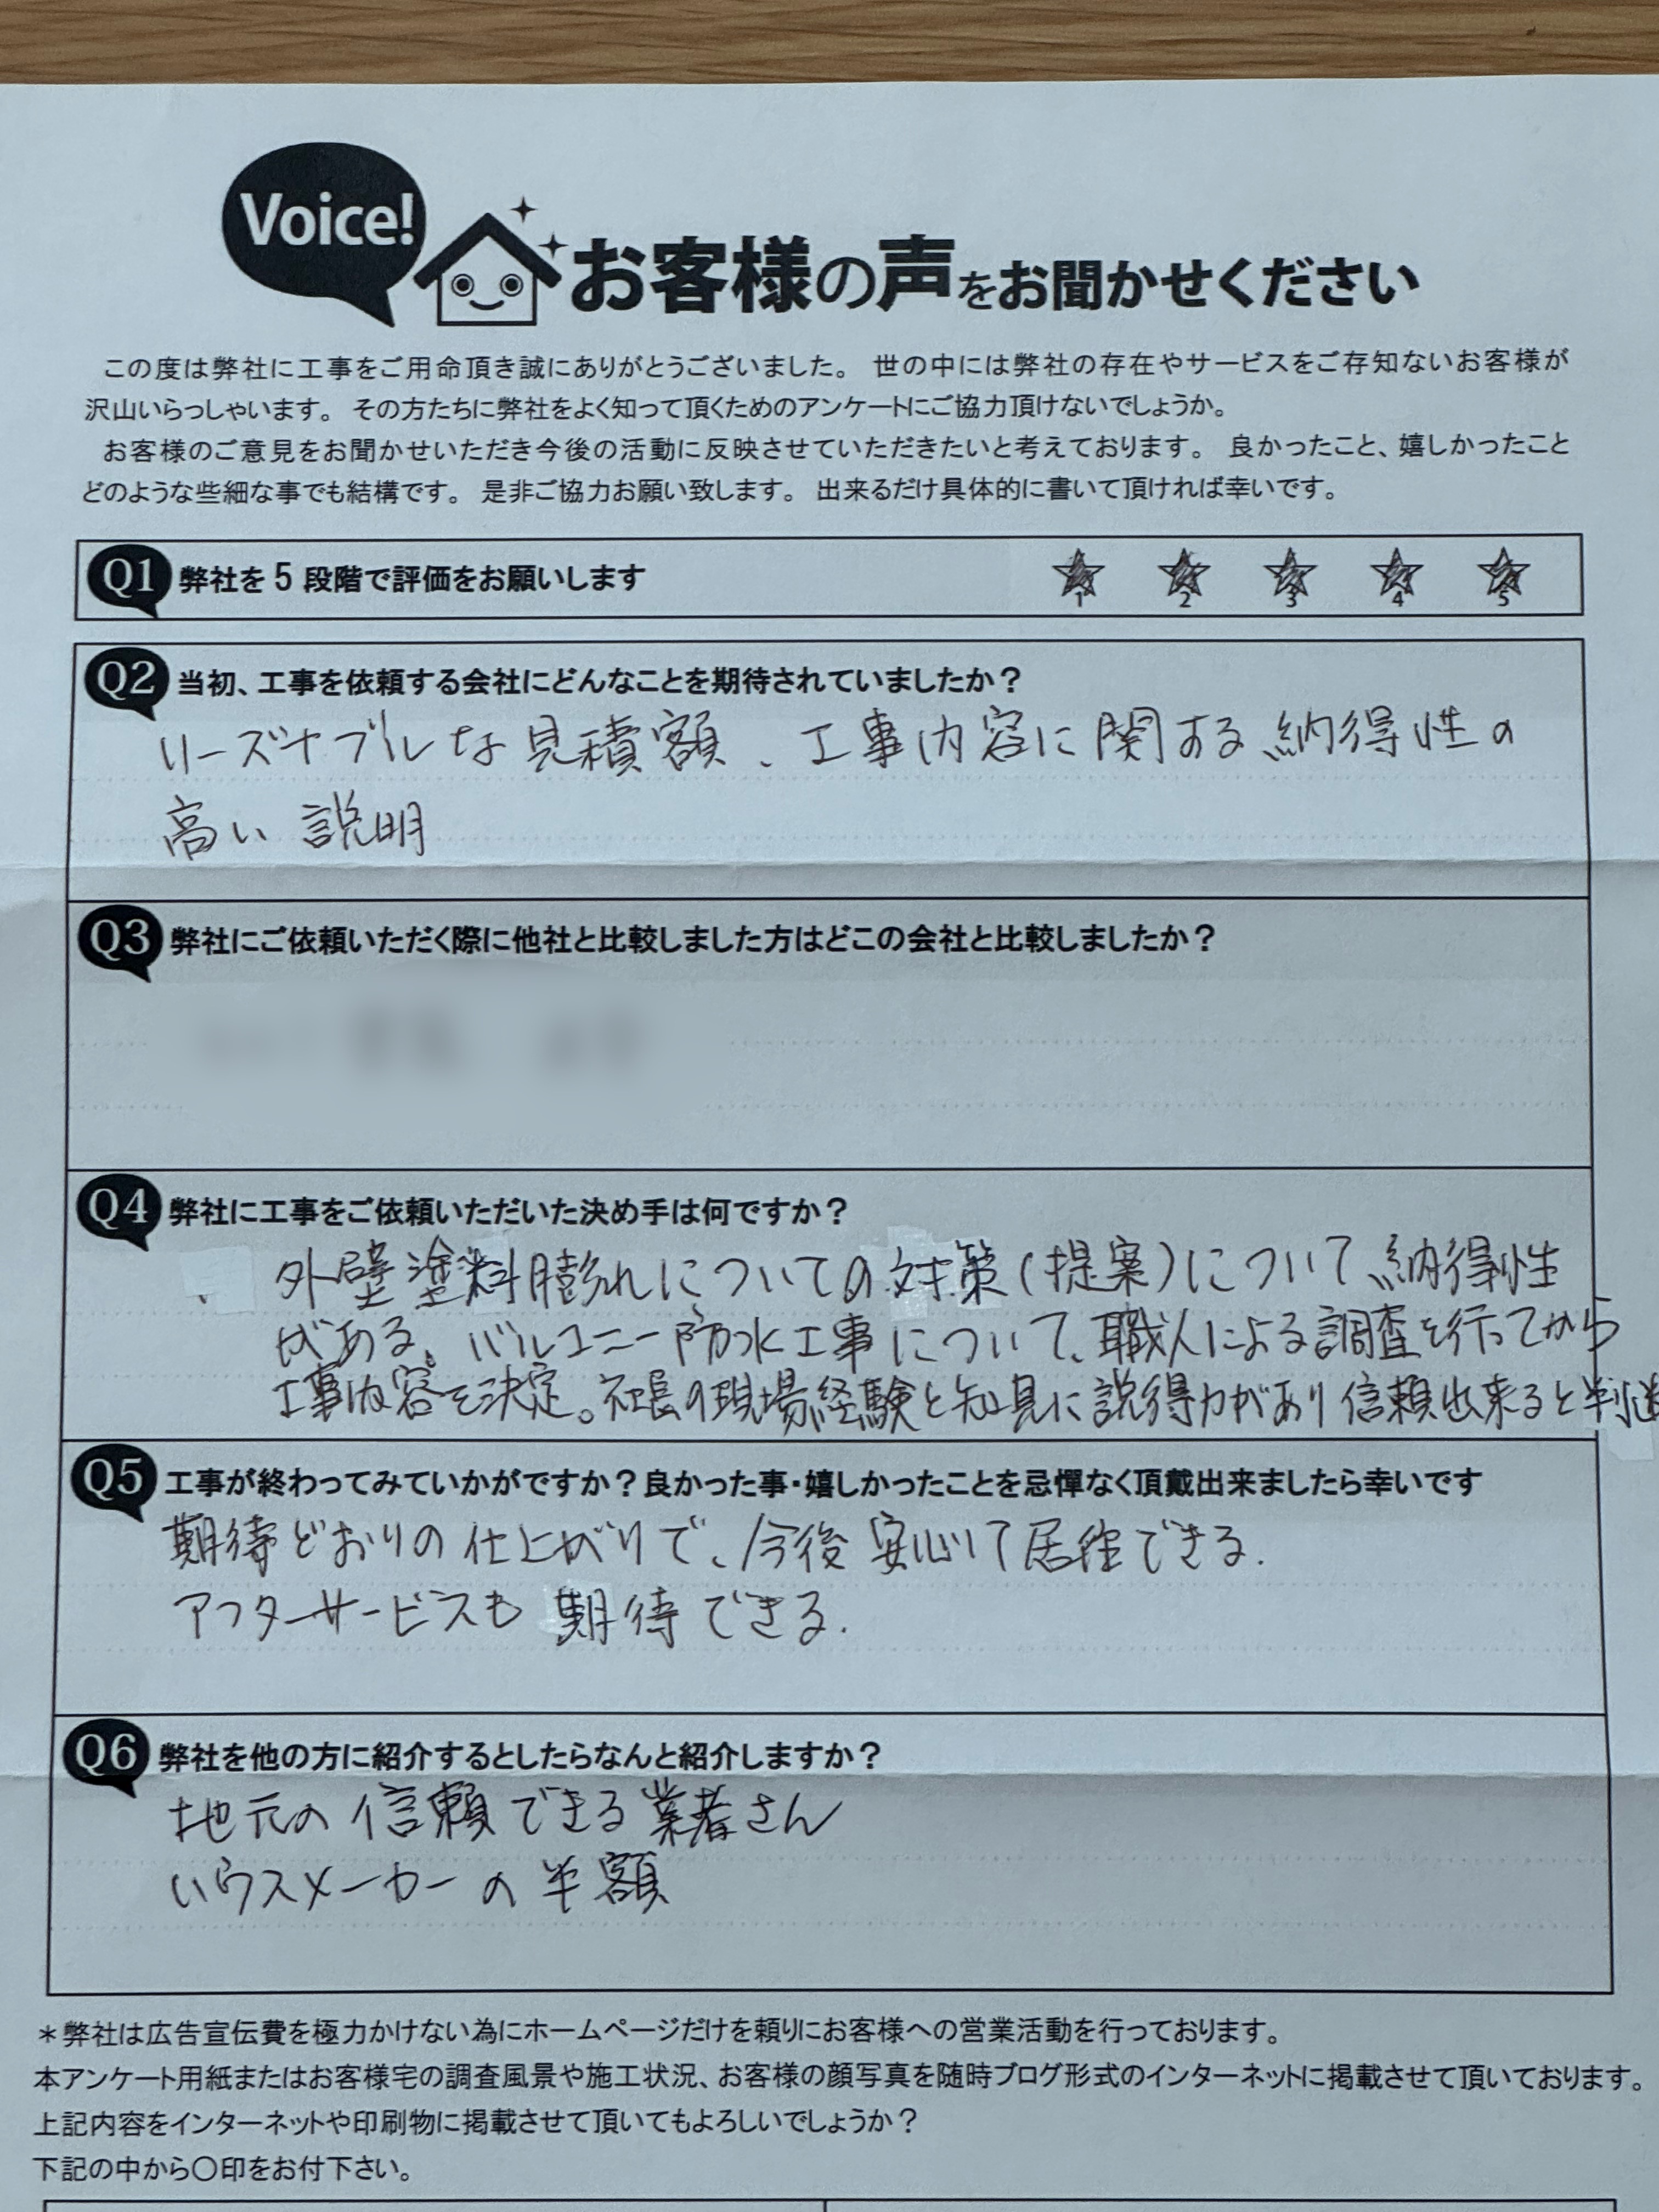 Voice!
お客様の声をお聞かせください
この度は弊社に工事をご用命頂き誠にありがとうございました。世の中には弊社の存在やサービスをご存知ないお客様が
沢山いらっしゃいます。その方たちに弊社をよく知って頂くためのアンケートにご協力頂けないでしょうか。
お客様のご意見をお聞かせいただき今後の活動に反映させていただきたいと考えております。良かったこと、嬉しかったこと
どのような些細な事でも結構です。是非ご協力お願い致します。出来るだけ具体的に書いて頂ければ幸いです。
Q1 弊社を5段階で評価をお願いします
1 2 3 4 5
Q2 当初、工事を依頼する会社にどんなことを期待されていましたか？
リーズナブルな見積額、工事内容に関する納得性の
高い説明
Q3 弊社にご依頼いただく際に他社と比較しました方はどこの会社と比較しましたか？
Q4 弊社に工事をご依頼いただいた決め手は何ですか？
外壁塗料膨れについての対策(提案)について、納得性
がある。バルコニー防水工事について、職人による調査を行ってから
工事内容を決定。社長の現場経験と知見に説得力があり信頼出来ると判
Q5 工事が終わってみていかがですか？良かった事・嬉しかったことを忌憚なく頂戴出来ましたら幸いです
期待どおりの仕上がりで、今後安心して居住できる.
アフターサービスも期待できる.
Q6 弊社を他の方に紹介するとしたらなんと紹介しますか？
地元の信頼できる業者さん
ハウスメーカーの半額
＊弊社は広告宣伝費を極力かけない為にホームページだけを頼りにお客様への営業活動を行っております。
本アンケート用紙またはお客様宅の調査風景や施工状況、お客様の顔写真を随時ブログ形式のインターネットに掲載させて頂いております。
上記内容をインターネットや印刷物に掲載させて頂いてもよろしいでしょうか？
下記の中から〇印をお付下さい。